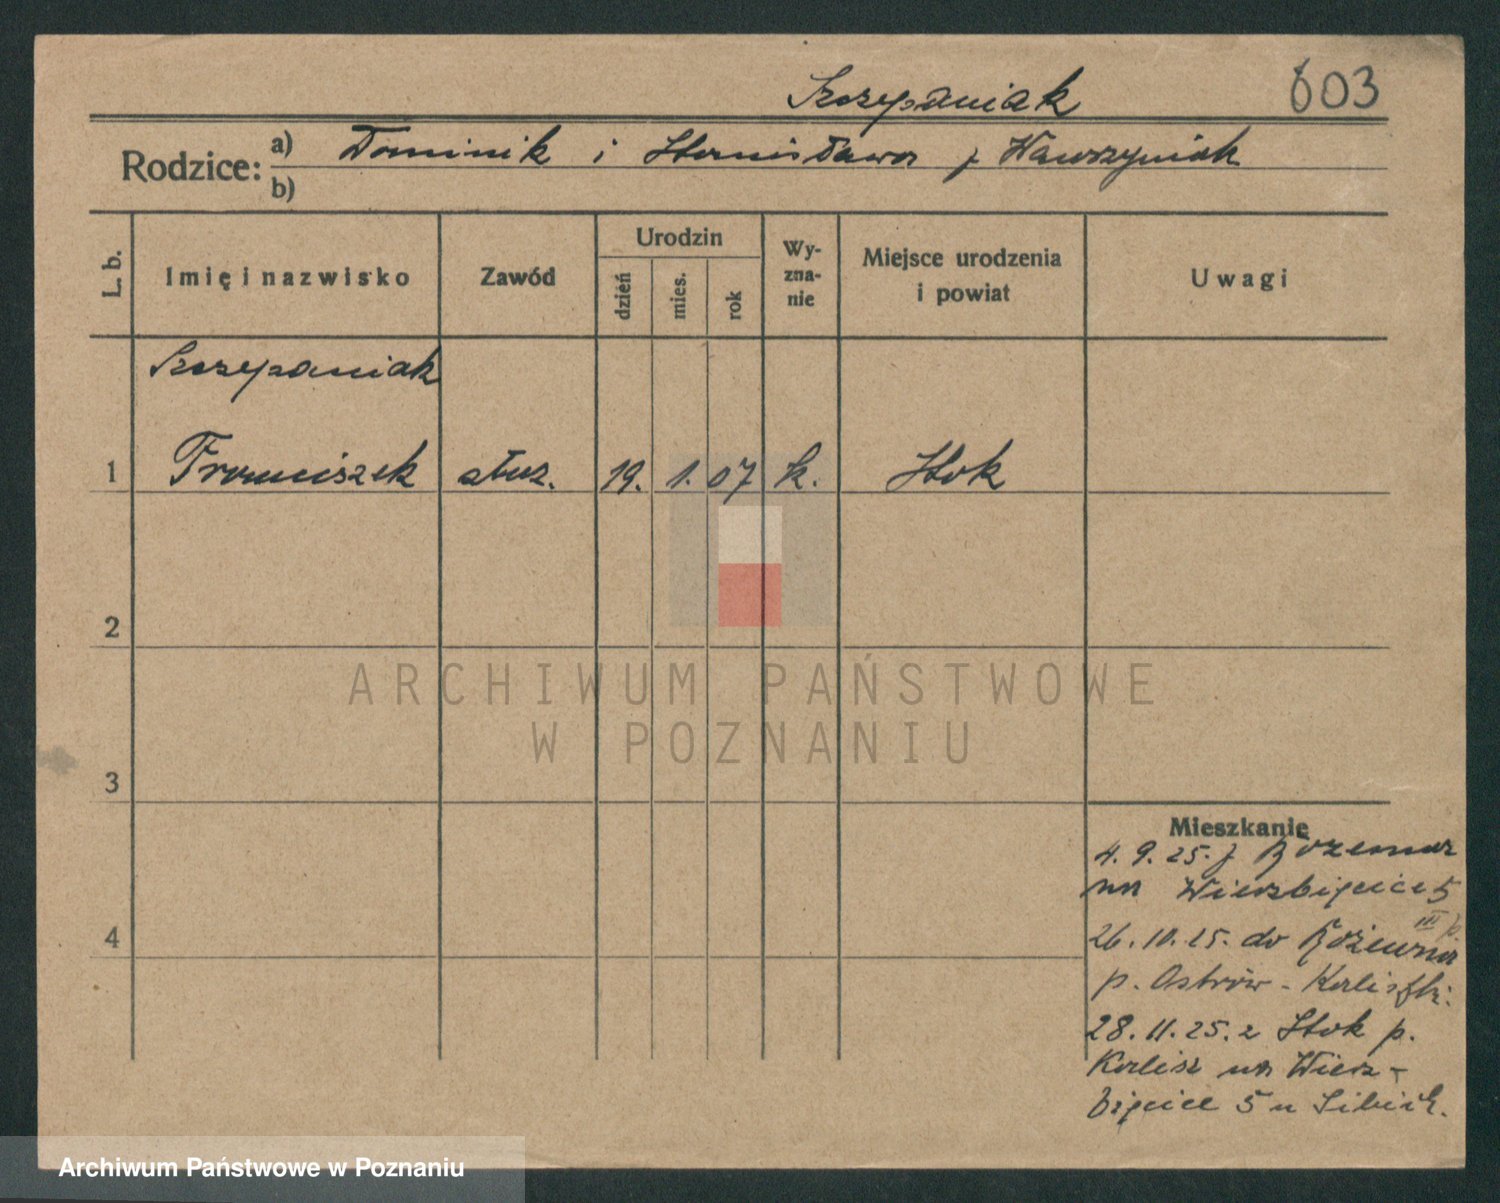 Szczypaniak
603
Rodzice: a) Dominik i Stanisława z Wawrzyniak
b)
L. b. Imię i nazwisko Zawód Urodzin dzień mies. rok Wy-zna-nie Miejsce urodzenia i powiat Uwagi
Szczypaniak
1 Franciszek służ. 19. 1. 07 k. Stok
2
ARCHIWUM PAŃSTWOWE
W POZNANIU
3
Mieszkanie
4. 9. 25. z
na Wierzbięcice 5
III p.
4
26. 10. 25. do
p. Ostrów - Kaliski.
28. 11. 25. z Stok p.
Kalisz na Wierz-
bięcice 5 u
Archiwum Państwowe w Poznaniu